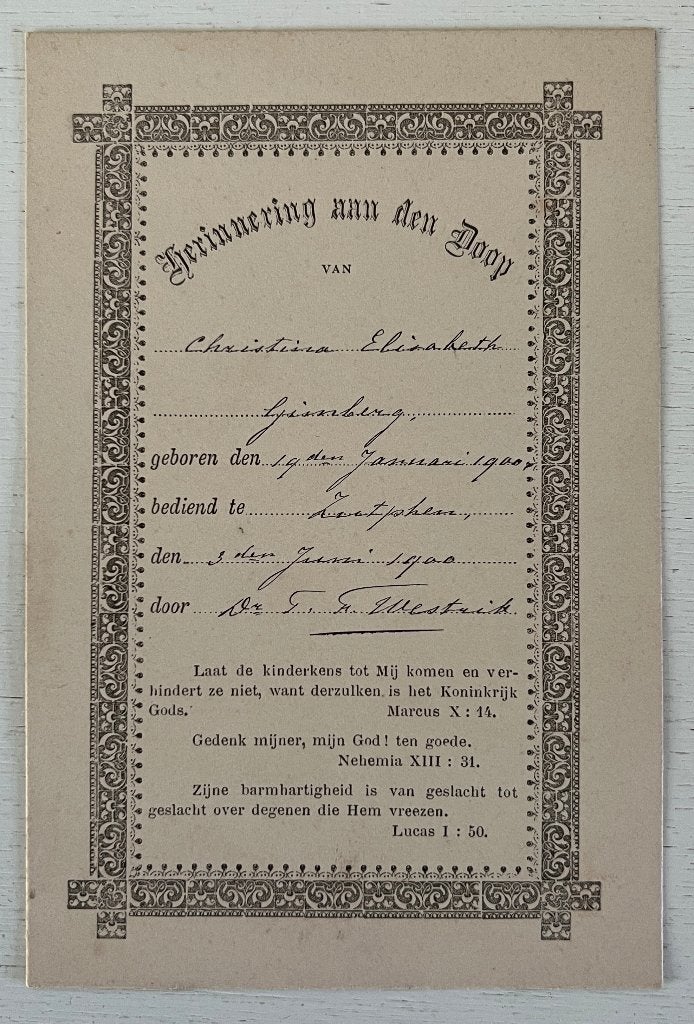 Herinnering aan den Doop
VAN
Christina Elisabeth
Gimberg,
geboren den 19den Januari 1900,
bediend te Zutphen,
den 3den Juni 1900
door Dr. T. F. Westrik
Laat de kinderkens tot Mij komen en ver-
hindert ze niet, want derzulken is het Koninkrijk
Gods. Marcus X : 14.
Gedenk mijner, mijn God! ten goede.
Nehemia XIII : 31.
Zijne barmhartigheid is van geslacht tot
geslacht over degenen die Hem vreezen.
Lucas I : 50.